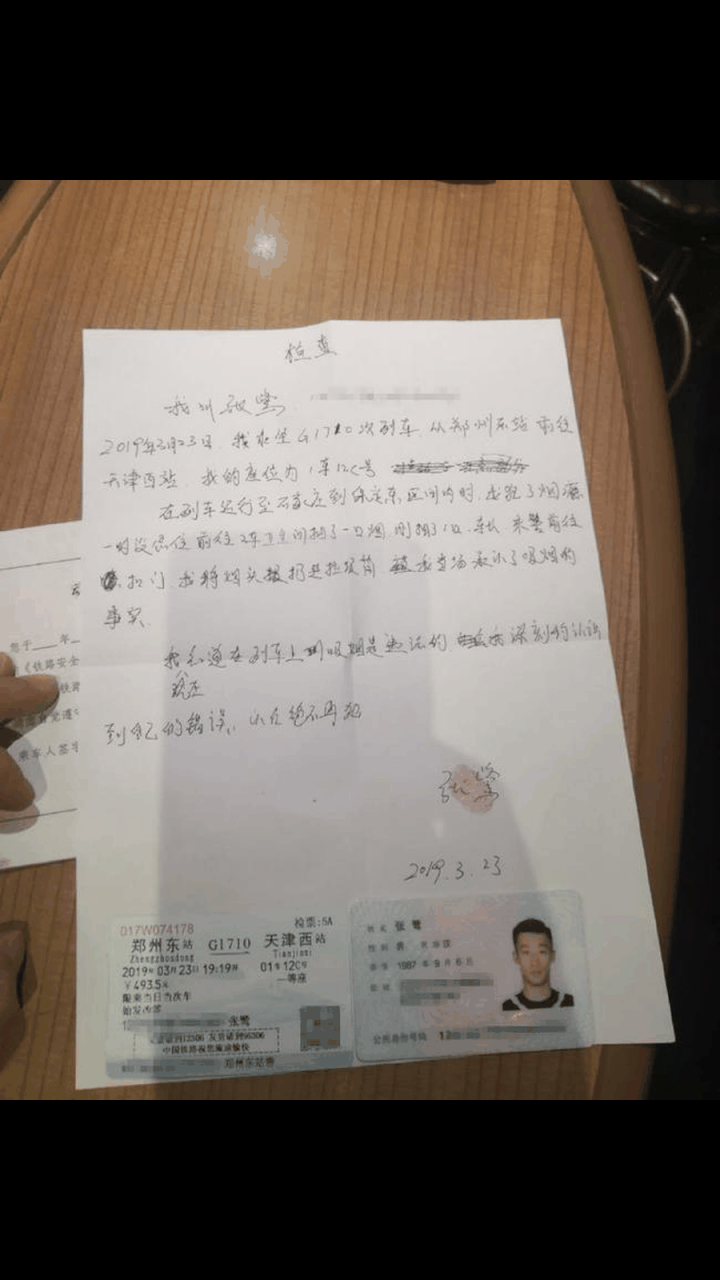 检查
我叫张鹭
2019年3月23日，我乘坐G1710次列车，从郑州东站前往
天津西站，我的座位为1车12C号
在列车运行至石家庄到保定东区间内时，我犯了烟瘾
一时没忍住前往2车卫生间抽了一口烟，刚抽了1口，车长、乘警前往
扣门，我将烟头扔进垃圾箱 我当场承认了吸烟的
事实。
我知道在列车上吸烟是违法的，我深刻的认识
到自己的错误，以后绝不再犯
张鹭
2019.3.23
您于 年
《铁路安全
乘车人签字
017W074178
检票:5A
郑州东站 G1710 天津西站
Zhengzhoudong Tianjinxi
2019年03月23日19:19开 01车12C号
￥493.5元 一等座
限乘当日当次车
始发改签
张鹭
中国铁路祝您旅途愉快
郑州东站售
姓名 张鹭
性别 男
公民身份号码